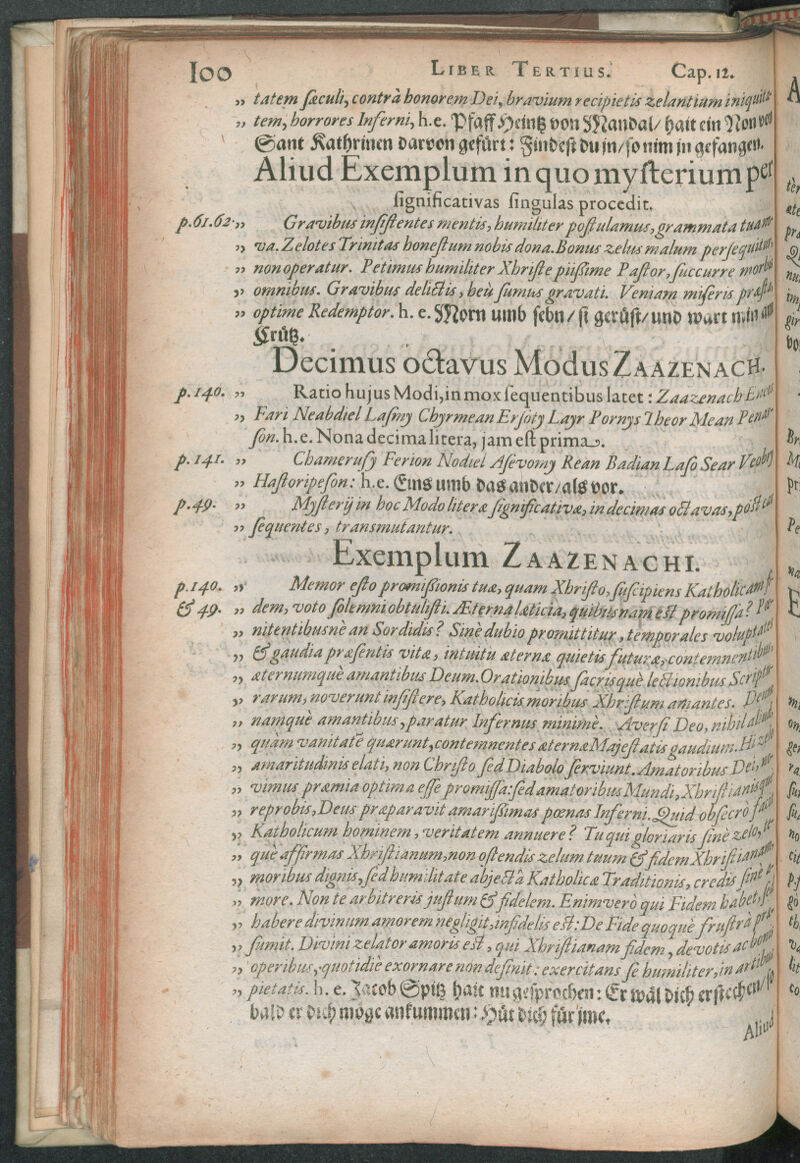 100 LIBER TERTIUS. Cap. 12.
„ tatem sæculi, contrà honorem Dei, bravium recipietis zelantium iniquita-
„ tem, horrores Inferni, h.e. Pfaff Heintz von Mandal / hait ein Non von
Sant Kathrinen darvon gefürt: Findest du in / so nim in gefangen.
Aliud Exemplum in quo mysterium per
significativas singulas procedit.
p.61.62. „ Gravibus insistentes mentis, humiliter postulamus, grammata tuam
„ va. Zelotes Trinitas honestum nobis dona. Bonus zelus malum persequitur,
„ non operatur. Petimus humiliter Xhriste piißime Pastor, succurre morbis
„ omnibus. Gravibus delictis, heu sumus gravati. Veniam miseris præsta,
„ optime Redemptor. h. e. Morn umb sebn / si gerüst / und wart min am
Crütz.
Decimus octavus Modus ZAAZENACH.
p.140. „ Ratio hujus Modi, in mox sequentibus latet: Zaazenach
„ Fari Neabdiel Lasmy Chyrmean Ersoty Layr Pornys Theor Mean Penar
son. h.e. Nona decima litera, jam est prima.
p.141. „ Chamerusy Ferion Nodiel Asevomy Rean Badian Laso Sear
„ Hasloripeson: h.e. Eins umb das ander / als vor.
p.49. „ Mysterij in hoc Modo literæ significativæ, in decimas octavas, post eas
„ sequentes, transmutantur.
Exemplum ZAAZENACHI.
p.140. „ Memor esto promißionis tuæ, quam Xhristo, suscipiens Katholicam fi-
& 49. „ dem, voto solemni obtulisti. Æterna lætitia, quibusnam est promissa? Pœ-
„ nitentibusne an Sordidis? Sine dubio promittitur, temporales voluptates
„ & gaudia præsentis vitæ, intuitu æternæ quietis futuræ, contemnentibus,
„ æternumquè amantibus Deum. Orationibus, sacrisquè lectionibus Scriptu-
„ rarum, noverunt insistere, Katholicis moribus Xhristum amantes. Deum
„ namquè amantibus, paratur Infernus minimè. Aversi Deo, nihil aliud
„ quàm vanitatè quærunt, contemnentes æternæ Majestatis gaudium. Hi zelo
„ amaritudinis elati, non Christo sed Diabolo serviunt. Amatoribus Dei, no-
„ vimus præmia optima esse promissa: sed amatoribus Mundi, Xhristianisque
„ reprobis, Deus præparavit amarißimas pœnas Inferni. Quid obsecrò facit
„ Katholicum hominem, veritatem annuere? Tu qui gloriaris sinè zelo, te-
„ què affirmas Xhristianum, non ostendis zelum tuum & fidem Xhristianam
„ moribus dignis, sed humilitate abjectâ Katholicæ Traditionis, credis sinè a-
„ more. Non te arbitreris justum & fidelem. Enimverò qui Fidem habet, sed
„ habere divinum amorem negligit, infidelis est: De Fide quoquè frustrà præ-
„ sumit. Divini zelator amoris est, qui Xhristianam fidem, devotis ac bonis
„ operibus, quotidiè exornare non desinit: exercitans se humiliter, in artibus
„ pietatis. h. e. Jacob Spitz hait nu gesprochen: Er wäl dich erstechen / so
bald er dich möge ankummen: Hüt dich für ime.
Aliud